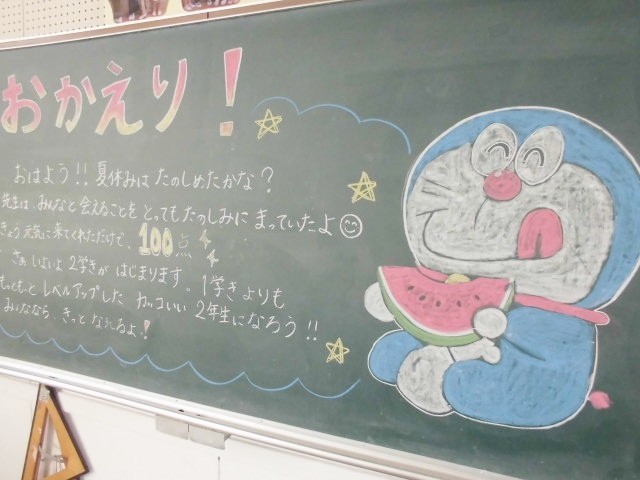 おかえり!
おはよう!! 夏休みは たのしめたかな?
先生は、みんなと 会えることを とってもたのしみに まっていたよ
きょう 元気に来てくれただけで、100点
さぁ いよいよ 2学きが はじまります。1学きよりも
もっともっと レベルアップした カッコいい 2年生になろう!!
みんななら、きっと なれるよ!